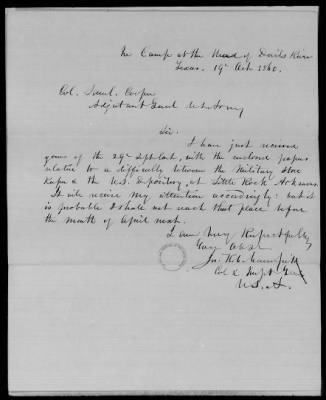 In Camp at the Head of Devils River
Texas. 19th Oct. 1860.
Col. Saml. Cooper
Adjutant Genl U.S. Army
Sir.
I have just received
yours of the 29th Sept. last, with the enclosed papers
relative to a difficulty between the Military Store
Keeper & the U.S. Depository, at Little Rock Arkansas.
It will receive my attention accordingly: but it
is probable I shall not reach that place before
the month of April next.
I am Very Respectfully
Your Obt. St.
Jos. K. F. Mansfield
Col & Inspt. Genl
U.S.A.